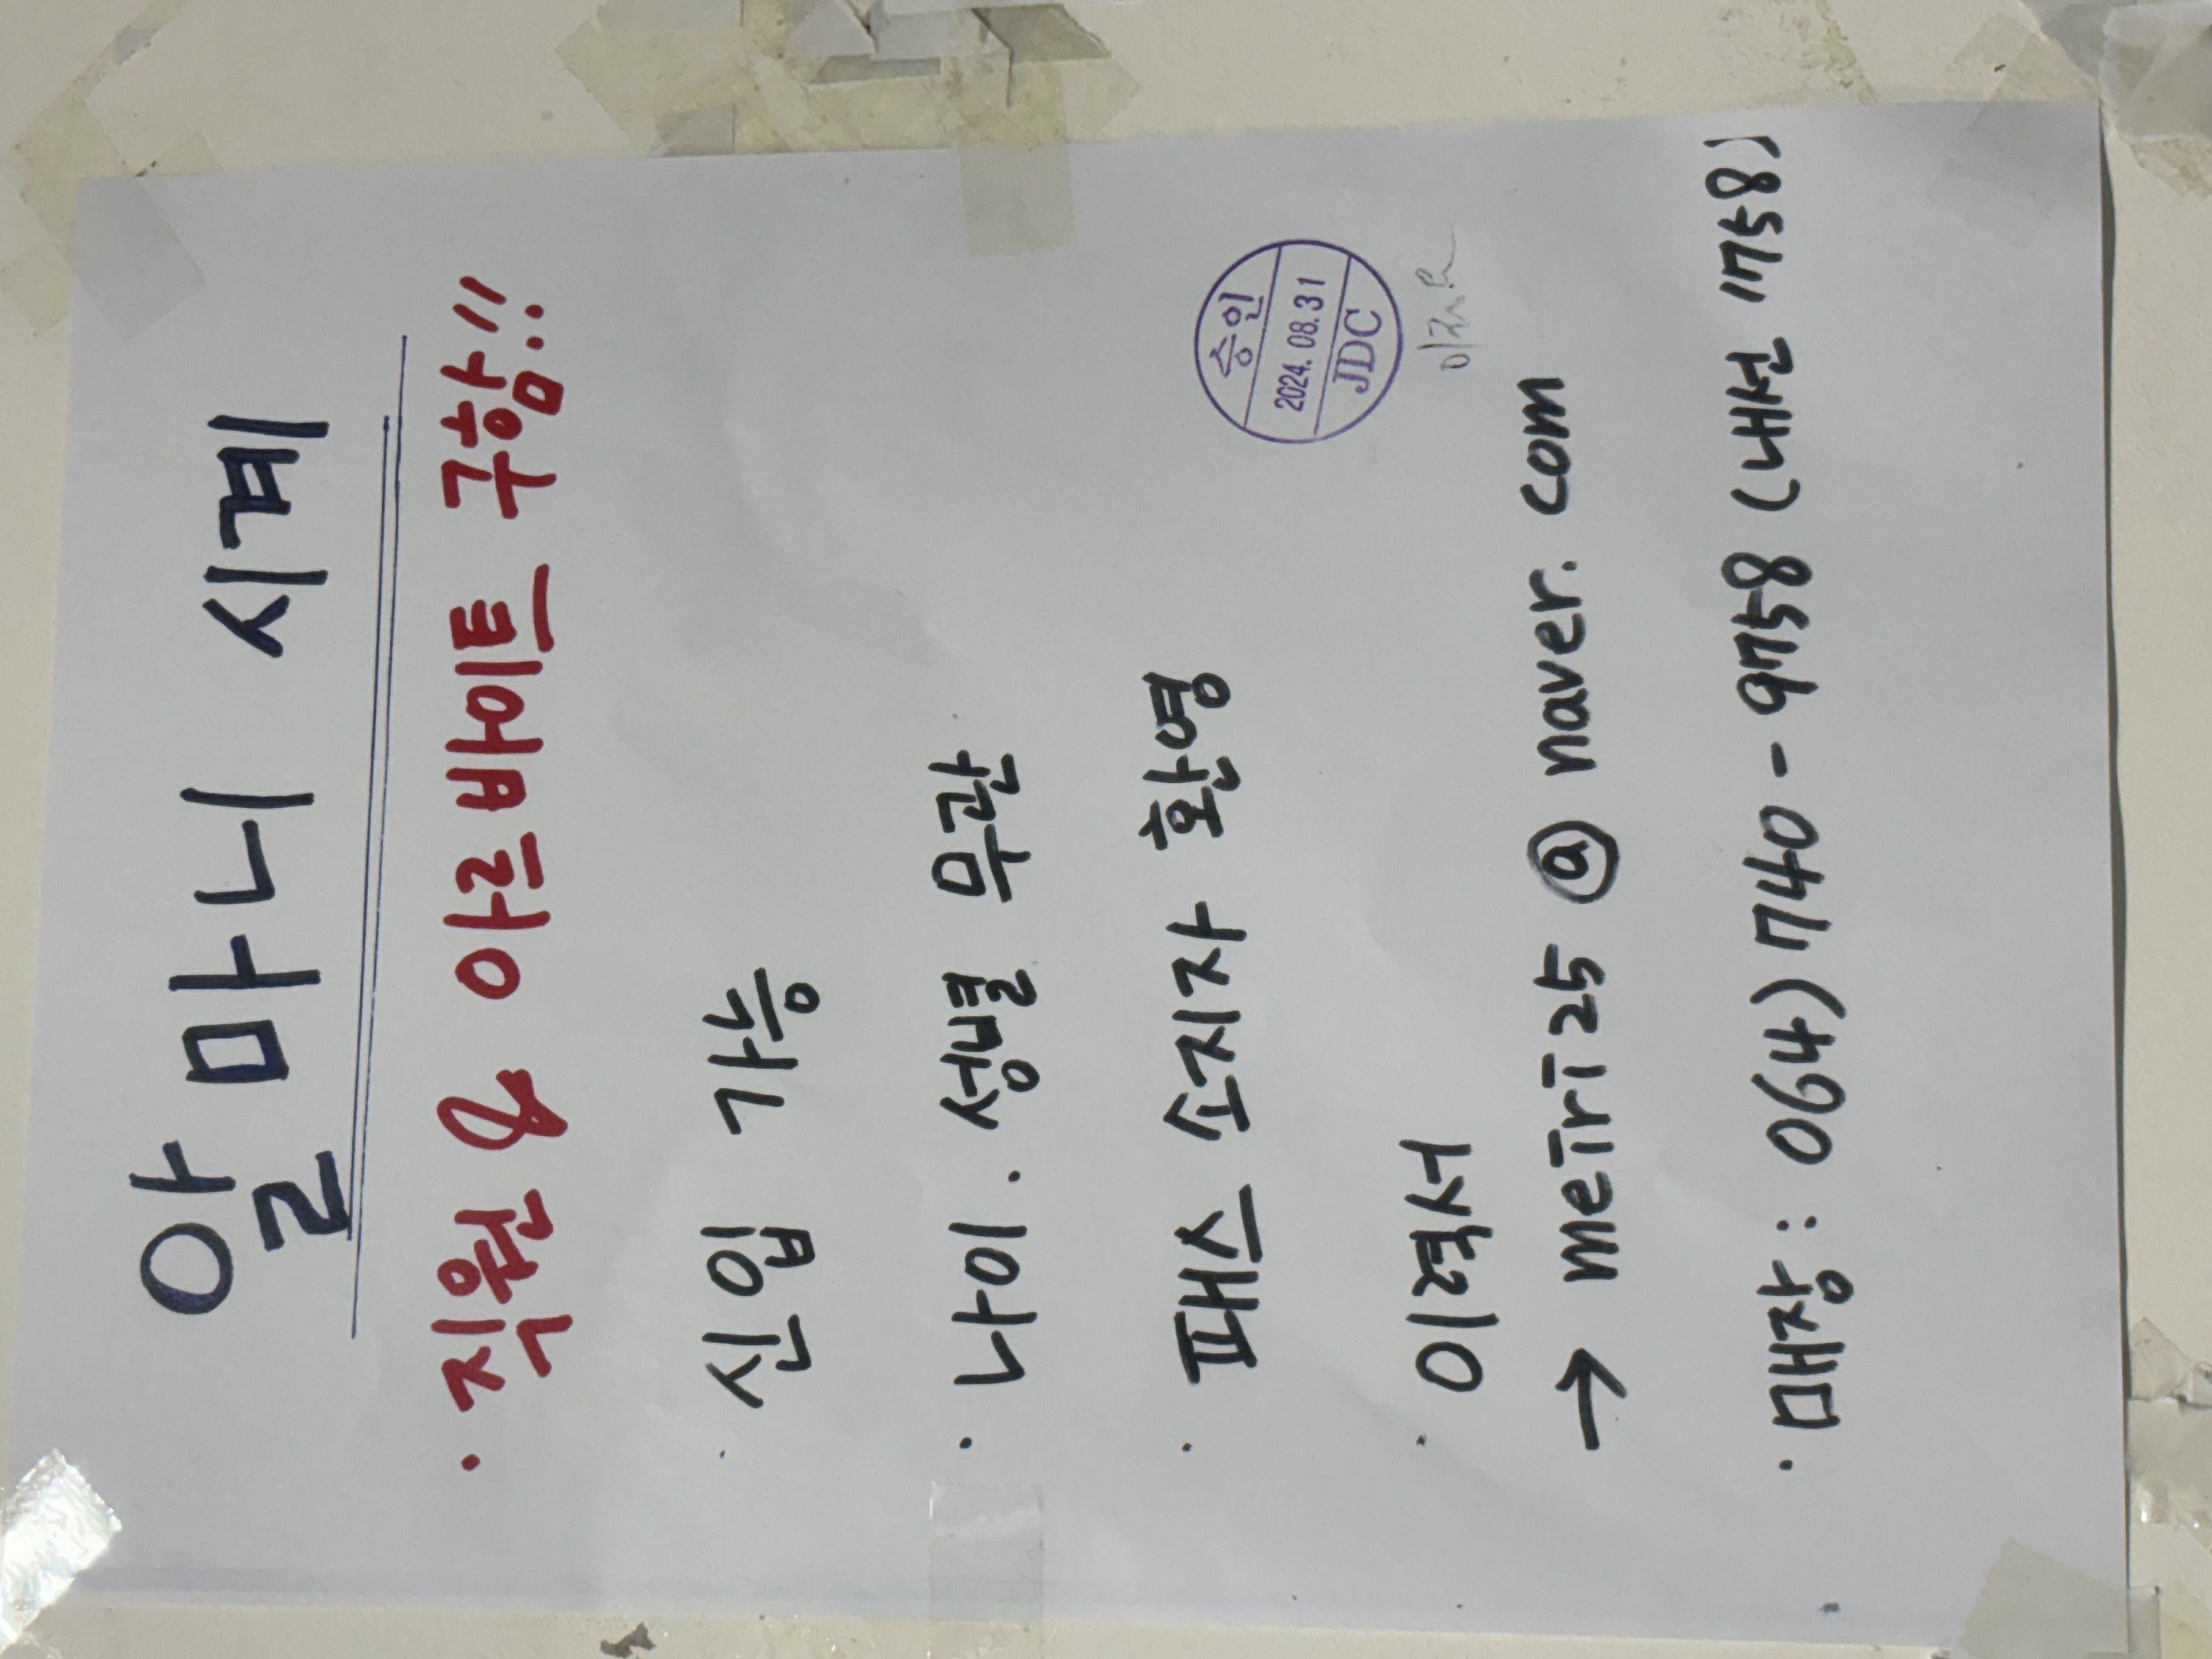 알마니 시계
· 직원 & 아르바이트 구함!!
· 신입 가능
· 나이. 성별 무관
· 패스 소지자 환영
승인
2024. 08. 31
JDC
· 이력서
→ metri25@naver.com
· 매장 : 064) 740 - 9758 (내선 1758)